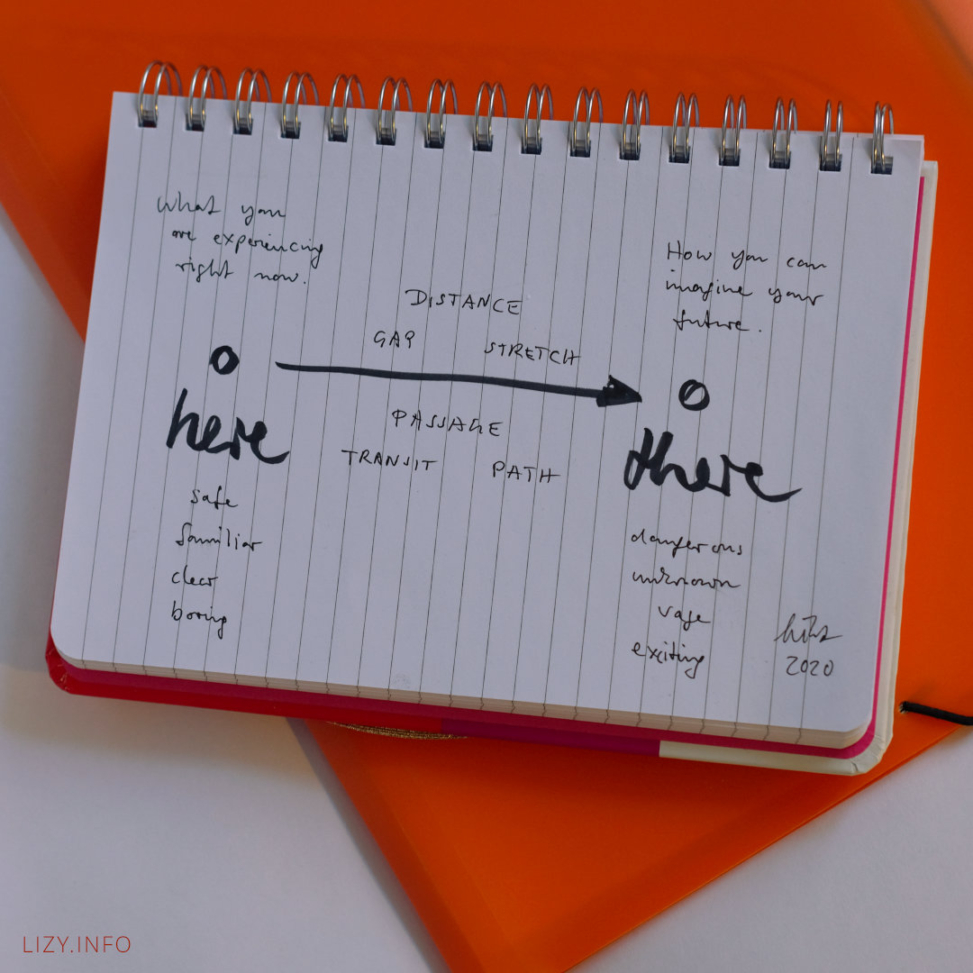 What you
are experiencing
right now.
How you can
imagine your
future.
DISTANCE
GAP STRETCH
PASSAGE
TRANSIT PATH
here
there
safe
familiar
clear
boring
dangerous
unknown
vage
exciting
2020
LIZY.INFO